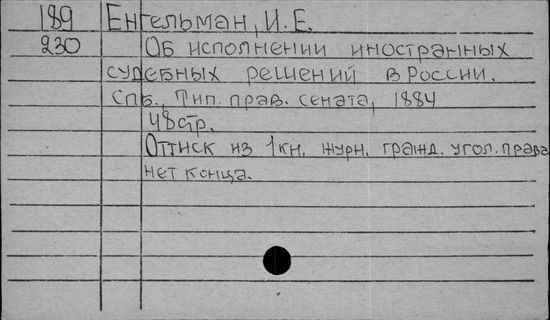 189 Енгельман, И. Е.
230 Об исполнении иностранных
судебных решений в России.
Спб., Тип. прав. сената, 1884
48 стр.
Оттиск из 1 кн. журн. гражд. угол. права
нет конца.